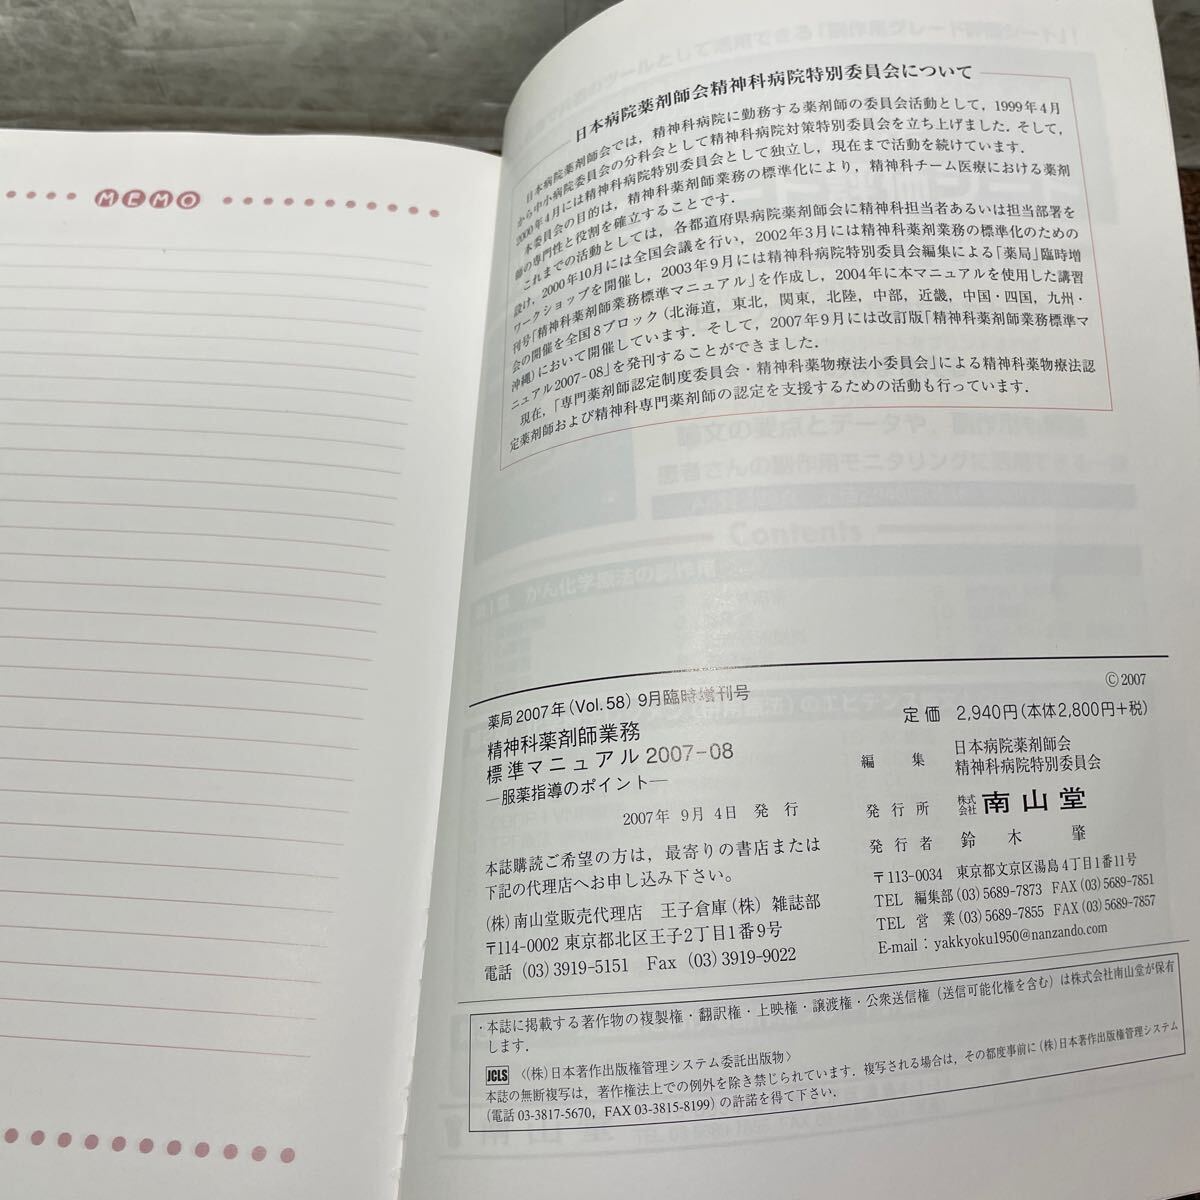 MEMO
日本病院薬剤師会精神科病院特別委員会について
日本病院薬剤師会では，精神科病院に勤務する薬剤師の委員会活動として，1999年4月
から中小病院委員会の分科会として精神科病院対策特別委員会を立ち上げました．そして，
2000年4月には精神科病院特別委員会として独立し，現在まで活動を続けています．
本委員会の目的は，精神科薬剤師業務の標準化により，精神科チーム医療における薬剤
師の専門性と役割を確立することです．
これまでの活動としては，各都道府県病院薬剤師会に精神科担当者あるいは担当部署を
設け，2000年10月には全国会議を行い，2002年3月には精神科薬剤業務の標準化のための
ワークショップを開催し，2003年9月には精神科病院特別委員会編集による「薬局」臨時増
刊号「精神科薬剤師業務標準マニュアル」を作成し，2004年に本マニュアルを使用した講習
会の開催を全国8ブロック（北海道，東北，関東，北陸，中部，近畿，中国・四国，九州・
沖縄）において開催しています．そして，2007年9月には改訂版「精神科薬剤師業務標準マ
ニュアル2007-08」を発刊することができました．
現在，「専門薬剤師認定制度委員会・精神科薬物療法小委員会」による精神科薬物療法認
定薬剤師および精神科専門薬剤師の認定を支援するための活動も行っています．
Contents
© 2007
薬局 2007年（Vol.58）9月臨時増刊号
精神科薬剤師業務
標準マニュアル 2007-08
―服薬指導のポイント―
2007年 9月 4日 発 行
本誌購読ご希望の方は，最寄りの書店または
下記の代理店へお申し込み下さい。
（株）南山堂販売代理店 王子倉庫（株）雑誌部
〒114-0002 東京都北区王子2丁目1番9号
電話（03）3919-5151 Fax（03）3919-9022
定価 2,940円（本体2,800円+税）
編 集 日本病院薬剤師会
精神科病院特別委員会
発行所 株式会社 南山堂
発行者 鈴木 肇
〒113-0034 東京都文京区湯島4丁目1番11号
TEL 編集部（03）5689-7873 FAX（03）5689-7851
TEL 営 業（03）5689-7855 FAX（03）5689-7857
E-mail：yakkyoku1950@nanzando.com
・本誌に掲載する著作物の複製権・翻訳権・上映権・譲渡権・公衆送信権（送信可能化権を含む）は株式会社南山堂が保有
します．
JCLS 〈（株）日本著作出版権管理システム委託出版物〉
本誌の無断複写は，著作権法上での例外を除き禁じられています．複写される場合は，その都度事前に（株）日本著作出版権管理システム
（電話 03-3817-5670，FAX 03-3815-8199）の許諾を得て下さい．